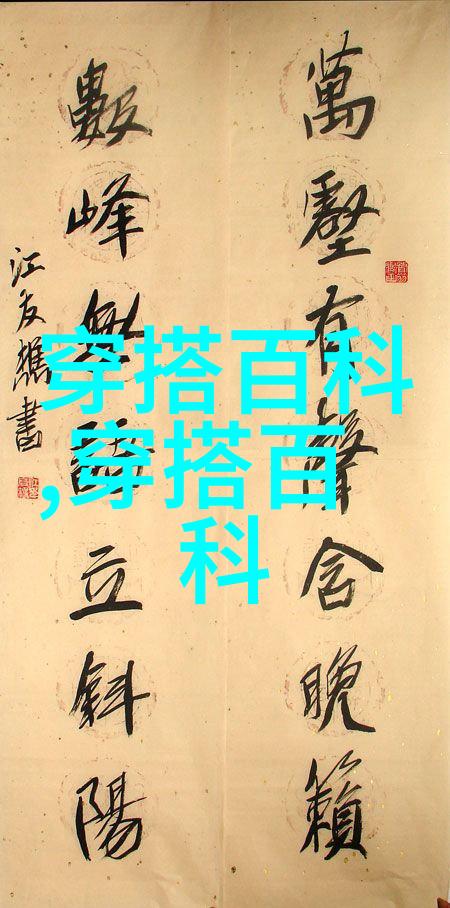 萬壑有聲含晚籟
數峰無語立斜陽
江友樵書
穿搭百科
,穿搭百
科